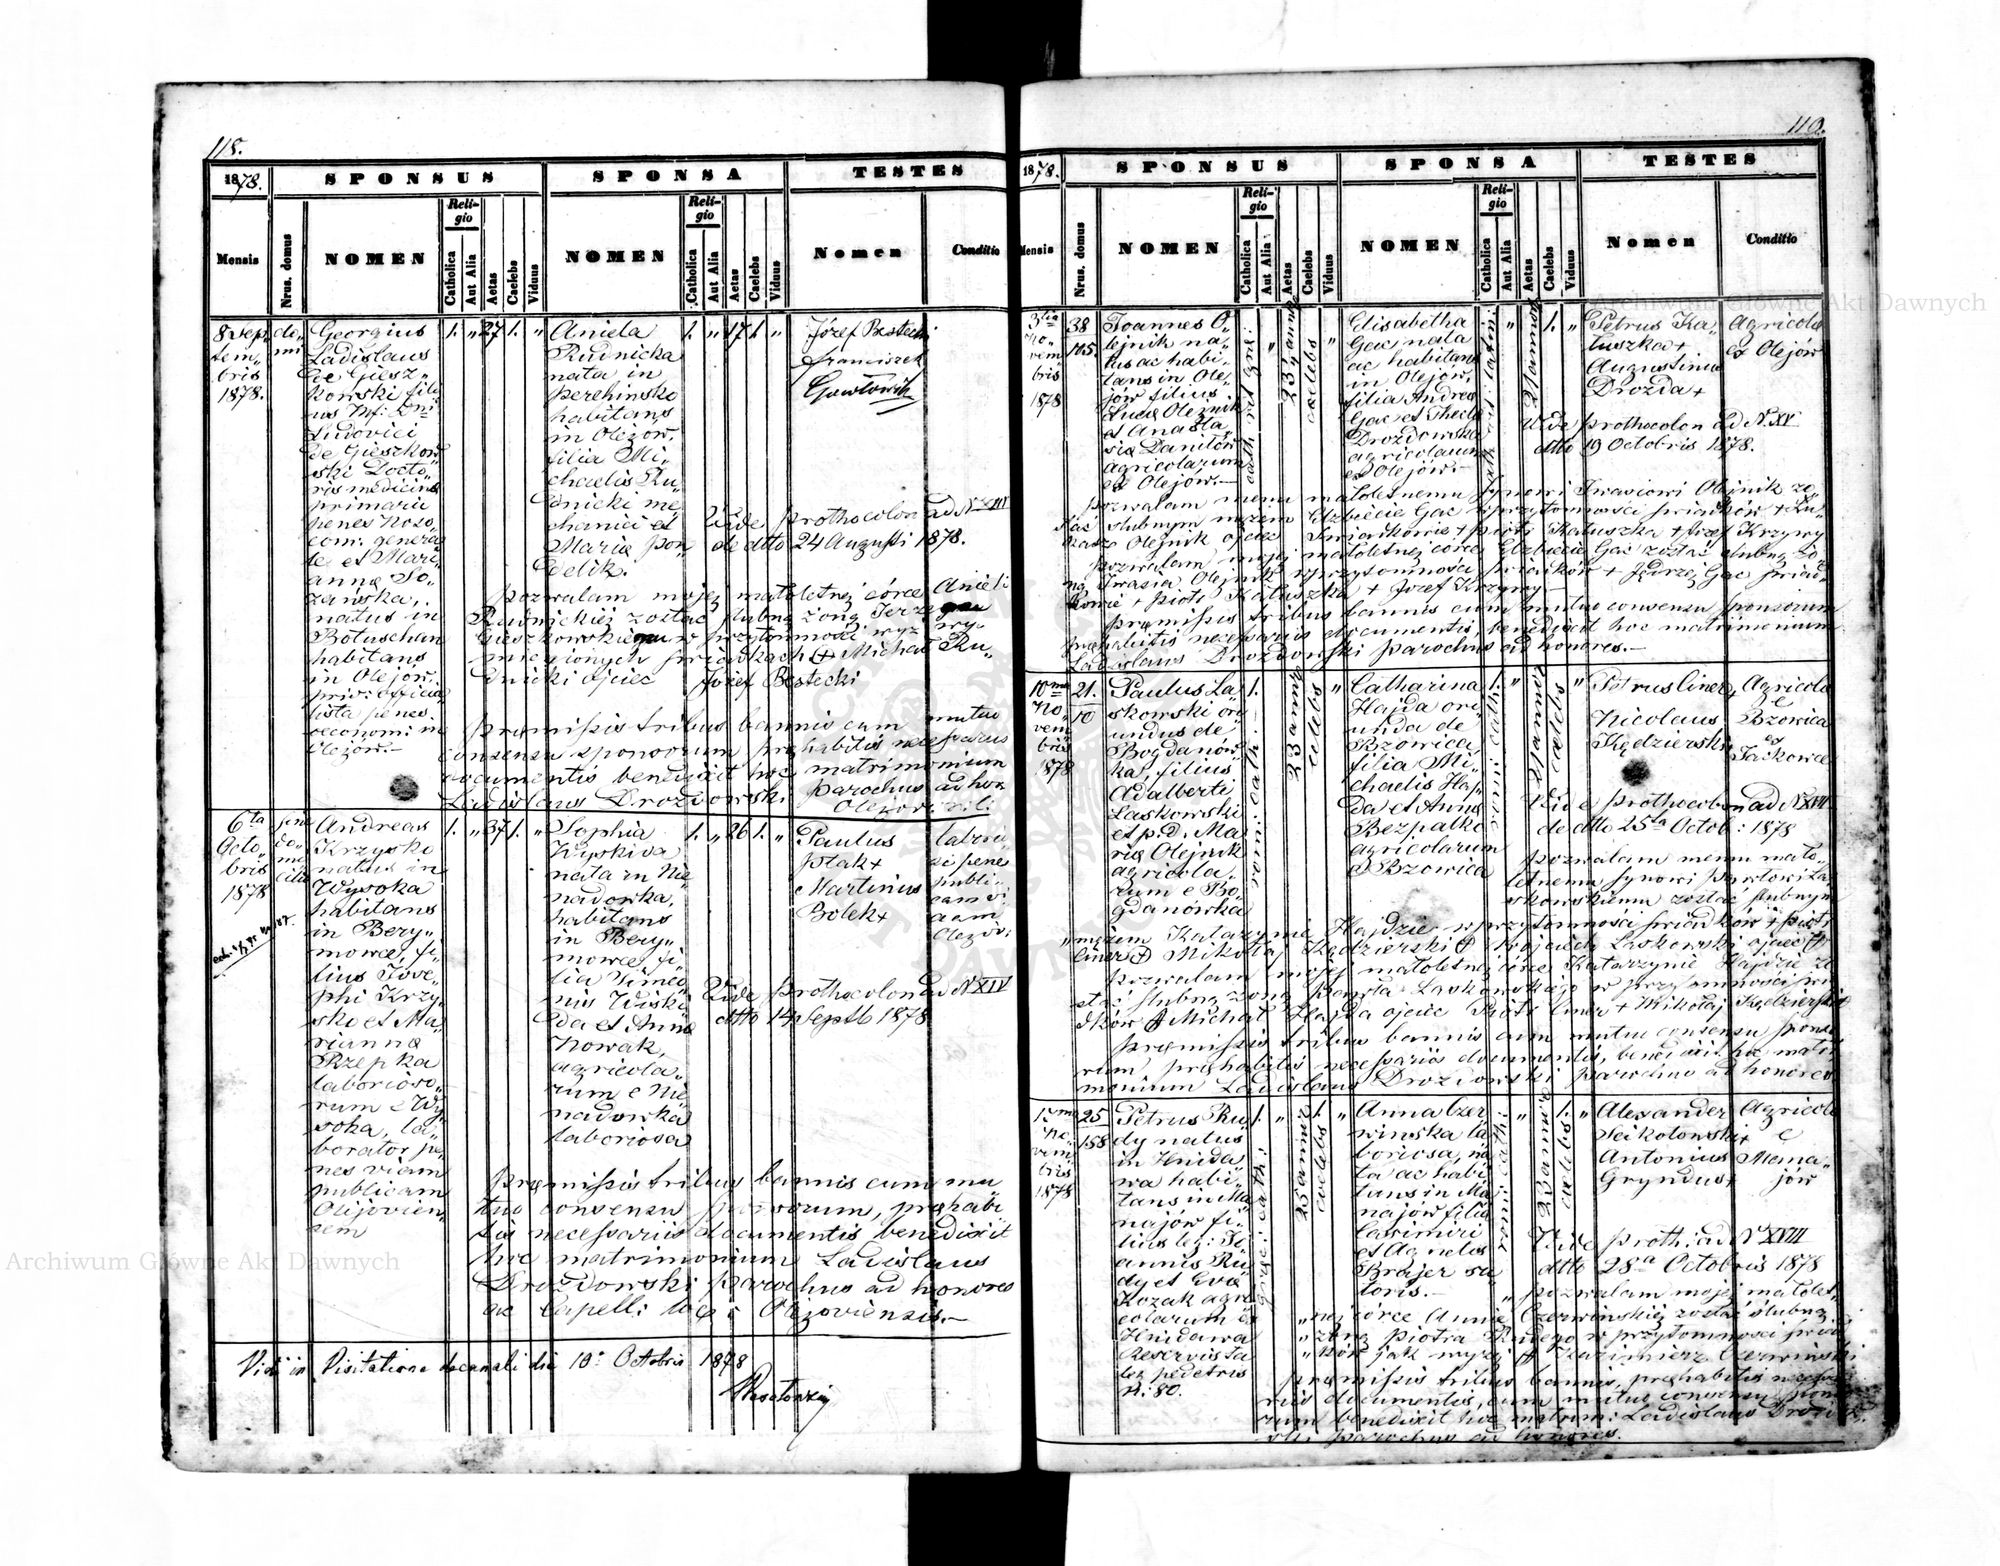 118.
1878.
SPONSUS
SPONSA
TESTES
Mensis
Nrus. domus
NOMEN
Religio
Catholica
Aut Alia
Aetas
Caelebs
Viduus
NOMEN
Religio
Catholica
Aut Alia
Aetas
Caelebs
Viduus
Nomen
Conditio
8 Sep„
tem„
bris
1878.
do„
mi
Georgius
Ladislaus
de Giesz„
kowski fili„
us Mf: Dni
Ludovici
de Gieszkow
ski Docto„
ris medicinæ
primarii
penes Noso„
com: genera
le et Mari„
annæ So„
zańska,
natus in
Botuschan
habitans
in Olejow.
priv: officia
lista penes
oeconomiam
Olejów.—
1. „ 27 1. „
Aniela
Rudnicka
nata in
Perehinsko
habitans
in Olejow,
filia Mi„
chaelis Ru„
dnicki me„
chanici et
Mariæ Pon„
delik.
1. „ 17 1. „
Józef Bestecki
Franciszek
Gawłowski
Vide prothocolon ad Nr XIII
de dtto 24 Augusti 1878.
Pozwalam mojej małoletnej córce Anieli
Rudnickiej zostać slubną żoną Jerzego
Gieszkowskiego w przytomności wyż wy„
mienionych swiadkach + Michał Ru„
dnicki ojciec Józef Bestecki
Præmissis tribus bannis cum mutuo
consensu sponsorum præhabitis necessariis
documentis benedixit hoc matrimonium
Ladislaus Drozdowski parochus ad hon
Olejoviensis:
6ta
Octo„
bris
1878
sine
do„
mi
cilio
Andreas
Krzysko
natus in
Wysoka
habitans
in Bery„
mowce, fi„
lius Jose„
phi Krzy„
sko et Ma„
riannæ
Rzepka
laborioso„
rum e Wy
soka, la„
borator pe„
nes viam
publicam
Olejovien„
sem
1. „ 37 1. „
Sophia
Wyskida
nata in Nie„
nadowka,
habitans
in Bery„
mowce, fi„
lia Simeo„
nis Wiski„
da et Annæ
Nowak,
agricola„
rum e Nie„
nadowka
laboriosa
1. „ 26 1. „
Paulus
Ptak+
Martinus
Bolek+
labora„
penes
publi„
cam
Vide prothocolon ad N XIV
dtto 14 Septb 1878
Præmissis tribus bannis cum mu„
tuo consensu sponsorum, præhabi
tis necessariis documentis benedixit
hoc matrimonium Ladislaus
Drozdowski parochus ad honores
ac Capell: loci Olejoviensis.—
Vidi in Visitatione decanali die 10. Octobris 1878
110.
1878.
SPONSUS
SPONSA
TESTES
Mensis
Nrus. domus
NOMEN
Religio
Catholica
Aut Alia
Aetas
Caelebs
Viduus
NOMEN
Religio
Catholica
Aut Alia
Aetas
Caelebs
Viduus
Nomen
Conditio
3tia
No„
vem
bris
1878
38
105.
Joannes O„
lejnik na„
tus ac habi„
tans in Ole„
jów filius
Lucæ Olejnik
et Anasta„
siæ Danilów
agricolarum
ex Olejów.—
23 annor
cælebs
Elisabetha
Gac nata
ac habitans
in Olejow,
filia Andreæ
Gac et Theclæ
Drozdowska
agricolarum
ex Olejów.—
21 annor
1. „
Petrus Ka„
łuszka+
Augustinus
Drozda+
Agricolæ
ex Olejów
Vide prothocolon ad N. XV
dtto 19 Octobris 1878.
Pozwalam memu małoletnemu synowi Iwasiowi Olejnik zo„
stać slubnym mężem Elżbiecie Gac w przytomności swiadków + Łu„
kasz Olejnik ojciec Swiadkowie + Piotr Kałuszka + Józef Krzywy
Pozwalam mojej małoletnej córce Elżbiecie Gac zostać slubną żo„
ną Iwasia Olejnik w przytomności swiadków + Jędrzej Gac swiad„
kowie + Piotr Kałuszka + Józef Krzywy—
Præmissis tribus bannis cum mutuo consensu sponsorum
præhabitis necessariis documentis, benedixit hoc matrimonium
Ladislaus Drozdowski parochus ad honores.—
10ma
No„
vem
bris
1878
21.
10
Paulus La„
skowski ori„
undus de
Bogdanów„
ka, filius
Adalberti
Laskowski
et p.d. Ma„
riæ Olejnik
agricola„
rum e Bo„
gdanówka
1.
rom: cath.
23 annor
cælebs
Catharina
Hajda ori„
unda de
Bzowica,
filia Mi„
chaelis Haj„
da et Annæ
Bezpalko
agricolarum
e Bzowica
1.
rom: cath:
cælebs
Petrus Ciner
Nicolaus
Kędzierski
Agricolæ
e
Bzowica
et
Jackowce
Vide prothocolon ad N XVII
de dtto 25ta Octob: 1878
Pozwalam memu mało„
letnemu synowi Pawłowi La„
skowskiemu zostać slubnym
„mężem Katarzynie Hajdzie w przytomności swiadków + Piotr
Ciner + Mikołaj Kędzierski + Wojciech Laskowski ojciec +
Pozwalam mojej małoletnej córce Katarzynie Hajdzie zo
stać slubną żoną Pawła Laskowskiego w przytomności swi
adków + Michał Hajda ojciec Piotr Ciner + Mikołaj Kędzierski+
Præmissis tribus bannis cum mutuo consensu sponso
rum præhabitis necessariis documentis, benedixit hoc matri
monium Ladislaus Drozdowski parochus ad honores
17ma
No„
vem
bris
1878
25
158
Petrus Ru„
dy natus
in Hnida„
wa habi„
tans in Ma„
najów fi„
lius leg: Jo„
annis Ru„
dy et Evæ
Kozak agri
colarum ex
Hnidawa
Reservista
leg pedestris
N: 80.
1.
græci cath:
25 annor
cælebs
Anna Czer„
winska la„
boriosa, na„
ta ac habi„
tans in Ma„
najów filia
Casimiri
et Agnetis
Brajer su„
toris.—
romani cath:
23 annor
cælebs
Alexander
Seikotowski+
Antonius
Gryndus+
Agricolæ
e
Mana„
jów
Vide proth: ad N XVIII
dtto 28a Octobris 1878
„Pozwalam mojej małolet„
„nej córce Annie Czerwińskiej zostać slubną
„żoną Piotra Rudego w przytomności swiad
„ków jak wyżej + Kazimierz Czerwiński
Præmissis tribus bannis, præhabitis necessa
riis documentis, cum mutuo consensu sponso
rum benedixit hoc matrim: Ladislaus Drozdow
ski parochus ad honores.
Archiwum Główne Akt Dawnych
Archiwum Główne Akt Dawnych